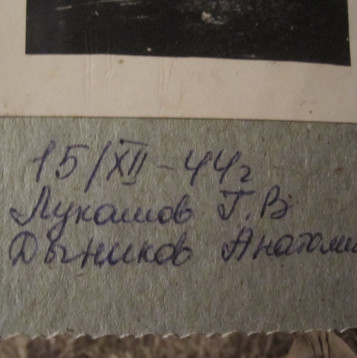 15/XII-44г
Лукашов Г.В
Дычиков Анатоли